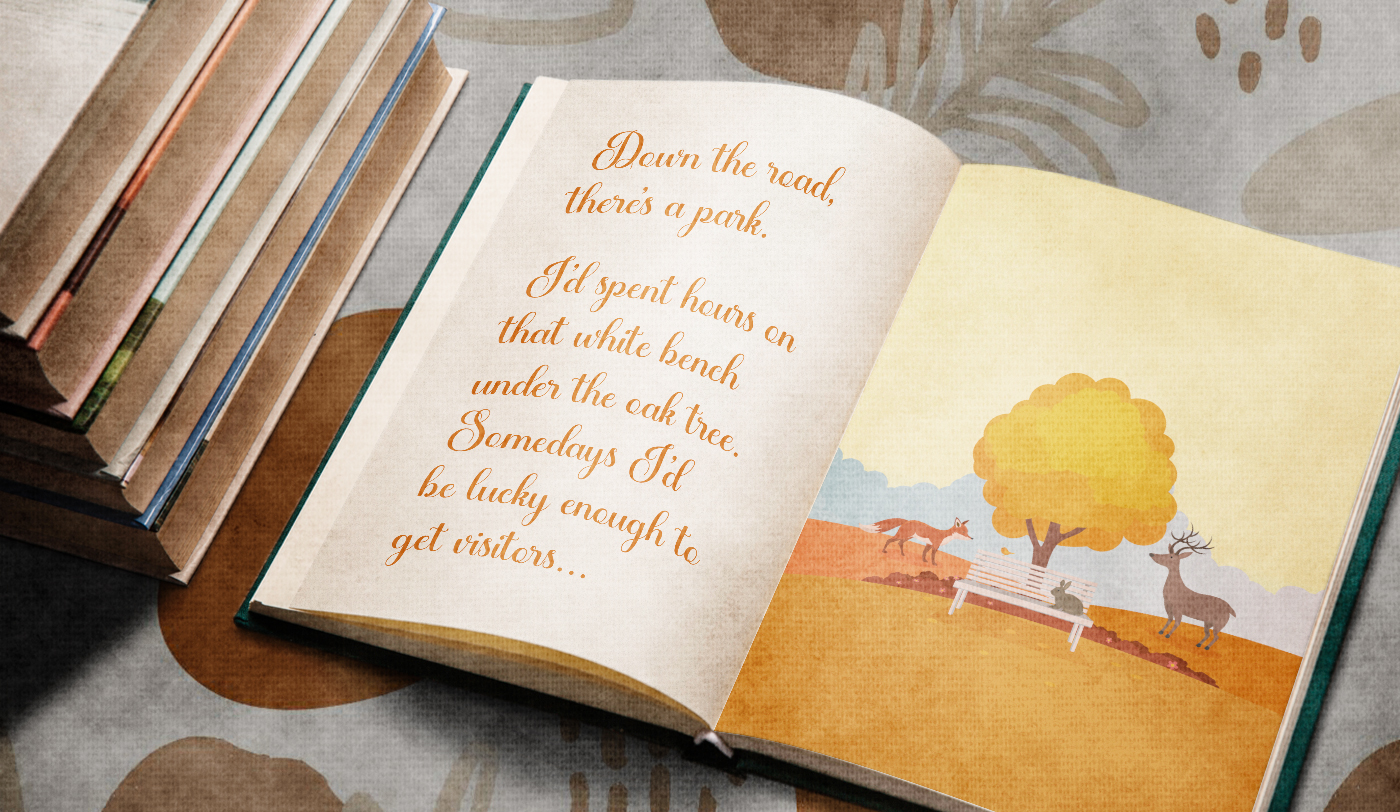 Down the road,
there's a park.
I'd spent hours on
that white bench
under the oak tree.
Somedays I'd
be lucky enough to
get visitors...